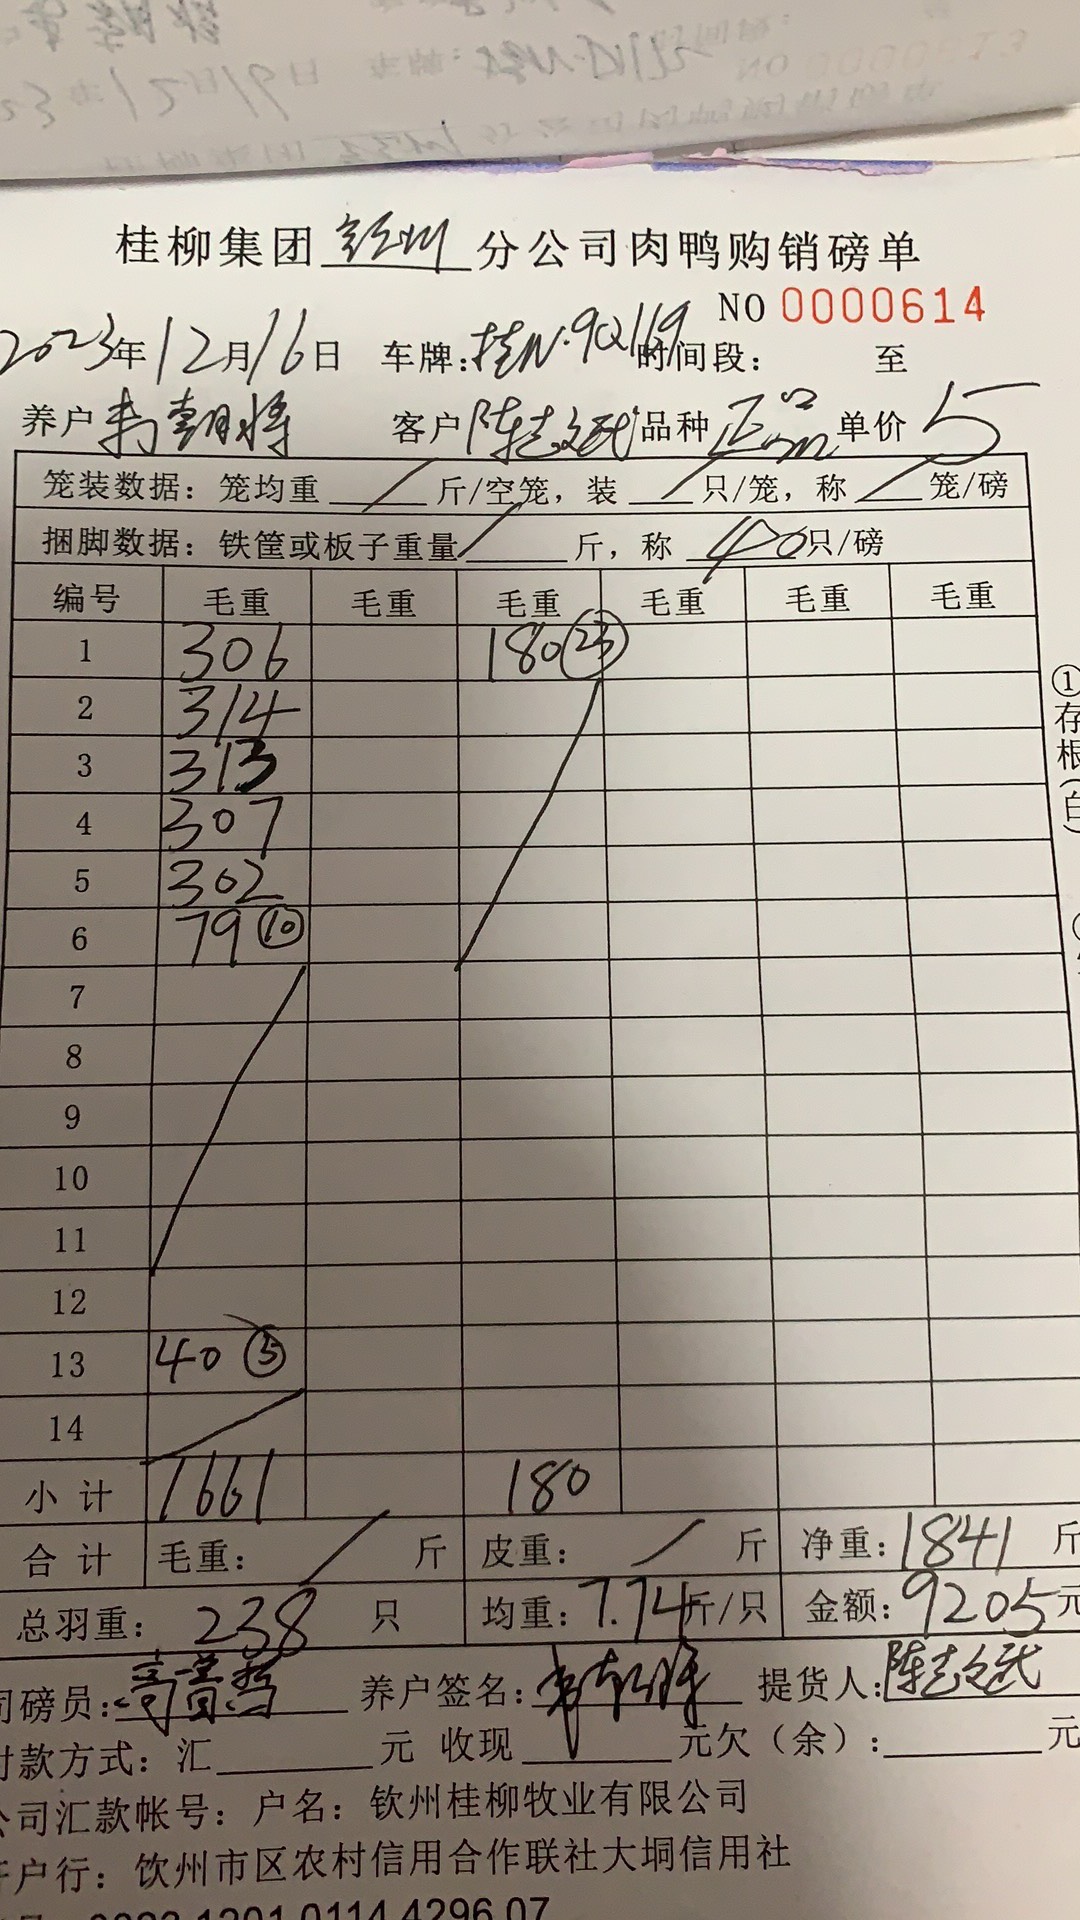 桂柳集团 钦州 分公司肉鸭购销磅单
NO 0000614
2023年12月16日 车牌:桂N·9Q119 时间段: 至
养户 客户 陈志武 品种 正品 单价 5
笼装数据:笼均重 / 斤/空笼,装 / 只/笼,称 / 笼/磅
捆脚数据:铁筐或板子重量 / 斤,称 40 只/磅
编号 毛重 毛重 毛重 毛重 毛重 毛重
1 306 180 ㉓
2 314
3 313
4 307
5 302
6 79 ⑩
7
8
9
10
11
12
13 40 ⑤
14
小计 1661 180
合计 毛重: / 斤 皮重: / 斤 净重:1841 斤
总羽重: 238 只 均重:7.74斤/只 金额:9205元
司磅员: 养户签名: 提货人:陈志武
付款方式:汇 元 收现 元欠(余): 元
公司汇款帐号:户名:钦州桂柳牧业有限公司
开户行:饮州市区农村信用合作联社大垌信用社
1201.0114.4296.07
①存根(白)